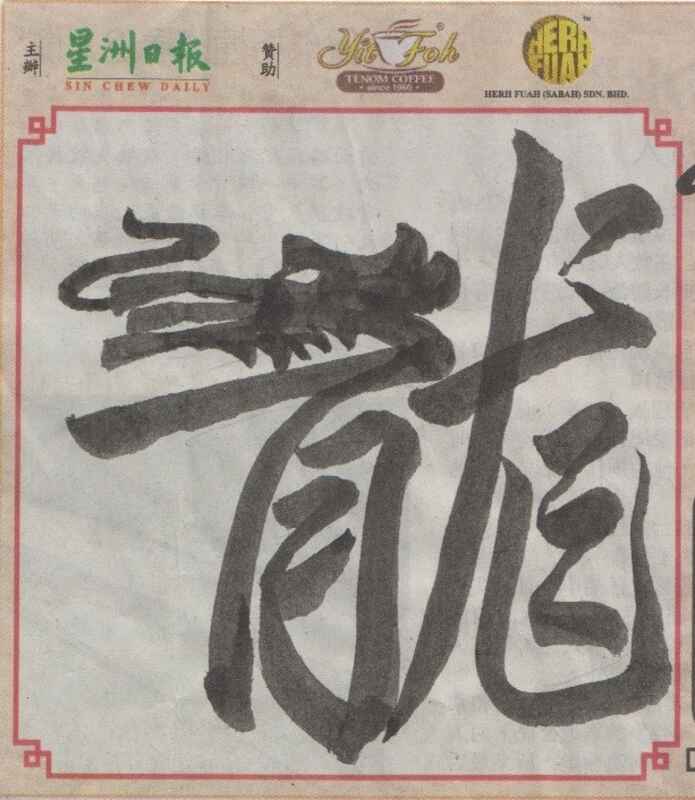 主辦
星洲日報
SIN CHEW DAILY
贊助
Yit Foh
TENOM COFFEE
• since 1960 •
HERH
FUAH
™
HERH FUAH (SABAH) SDN. BHD.
龍